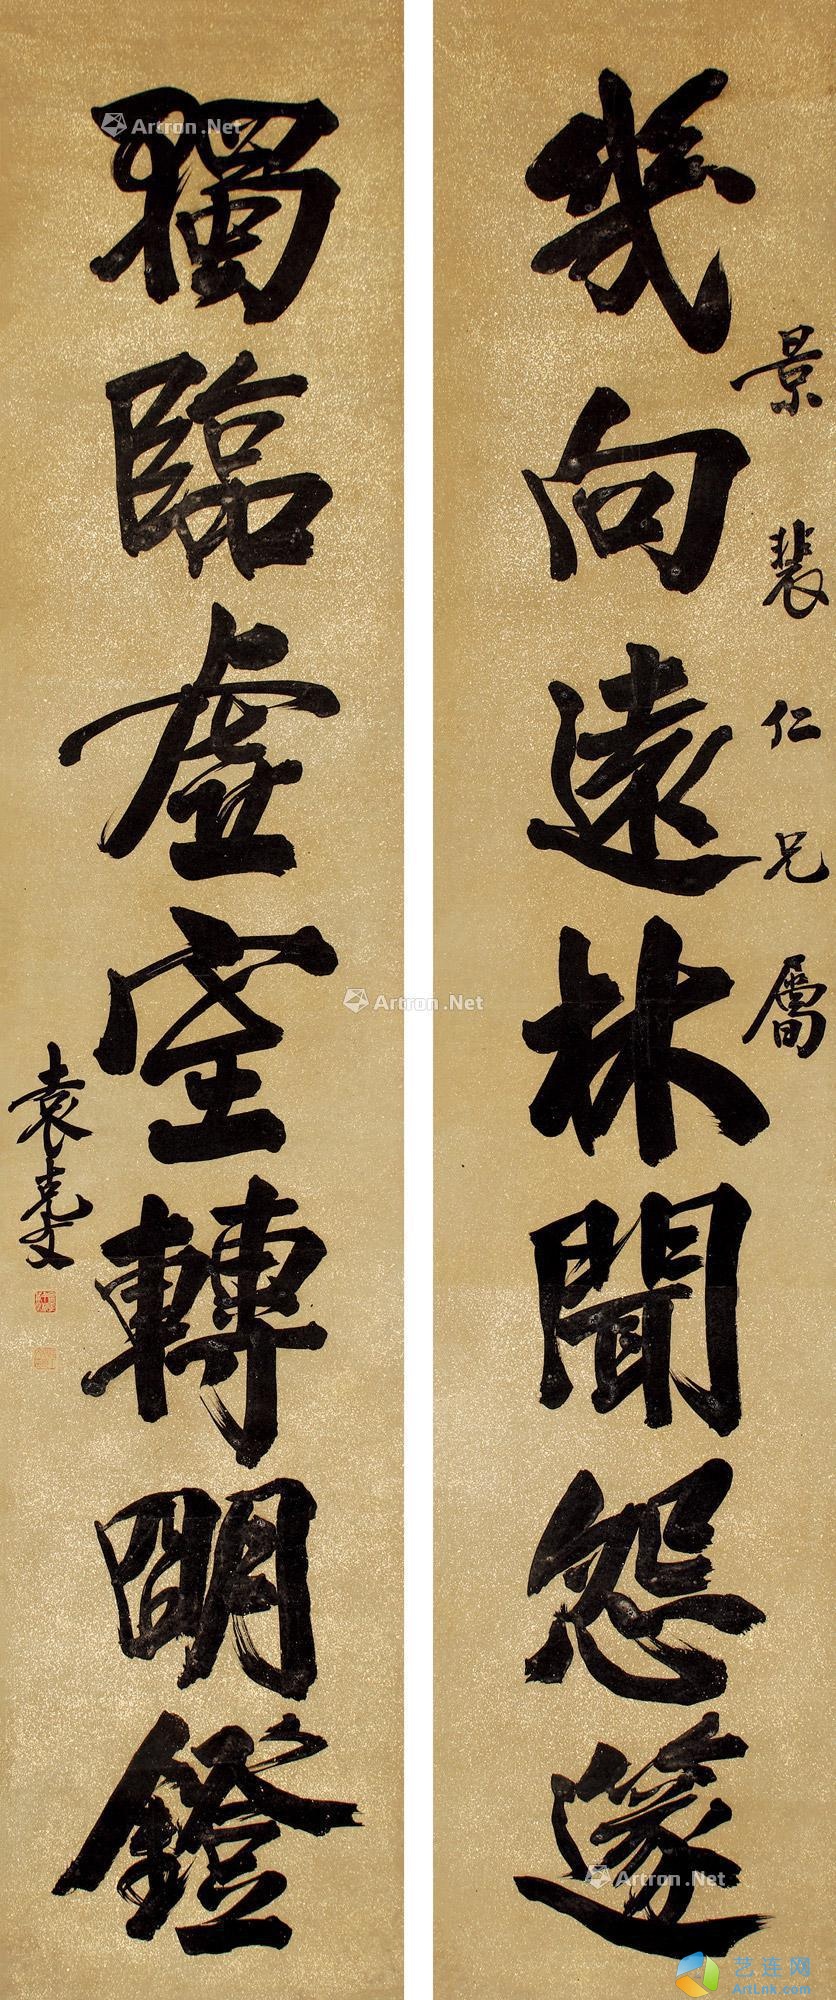 景裴仁兄屬
幾向遠林聞怨篴
獨臨虛室轉明鐙
袁克文
Artron.Net
Artron.Net
Artron.Net
艺连网
ArtLnk.com